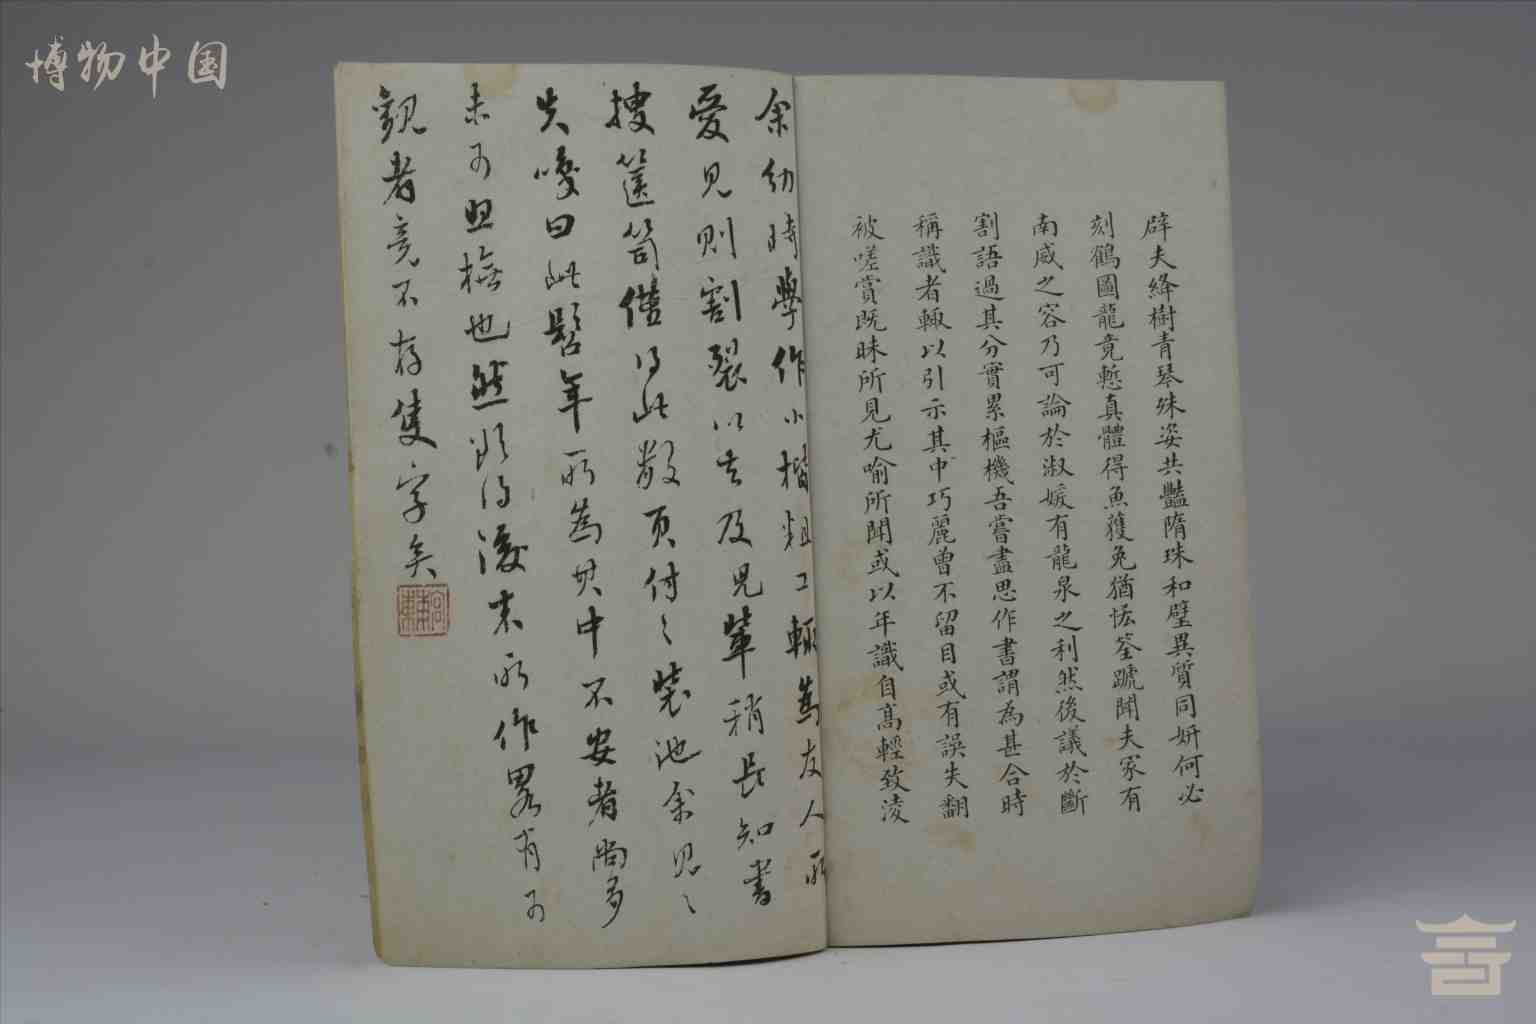 博物中国
辟夫絳樹青琴殊姿共豔隋珠和璧異質同妍何必
刻鶴圖龍竟慙真體得魚獲兔猶恡筌蹏聞夫家有
南威之容乃可論於淑媛有龍泉之利然後議於斷
割語過其分實累樞機吾嘗盡思作書謂為甚合時
稱識者輙以引示其中巧麗曾不留目或有誤失翻
被嗟賞既昧所見尤喻所聞或以年識自高輕致淩
余幼時學作小楷粗工輙為友人所
愛見則割裂以去及兒輩稍長知書
搜篋笥僅得此數頁付之裝池余見之
失噱曰此髫年所為其中不安者尚多
未可臨橅也然頗得後來所作畧有可
觀者竟不存隻字矣